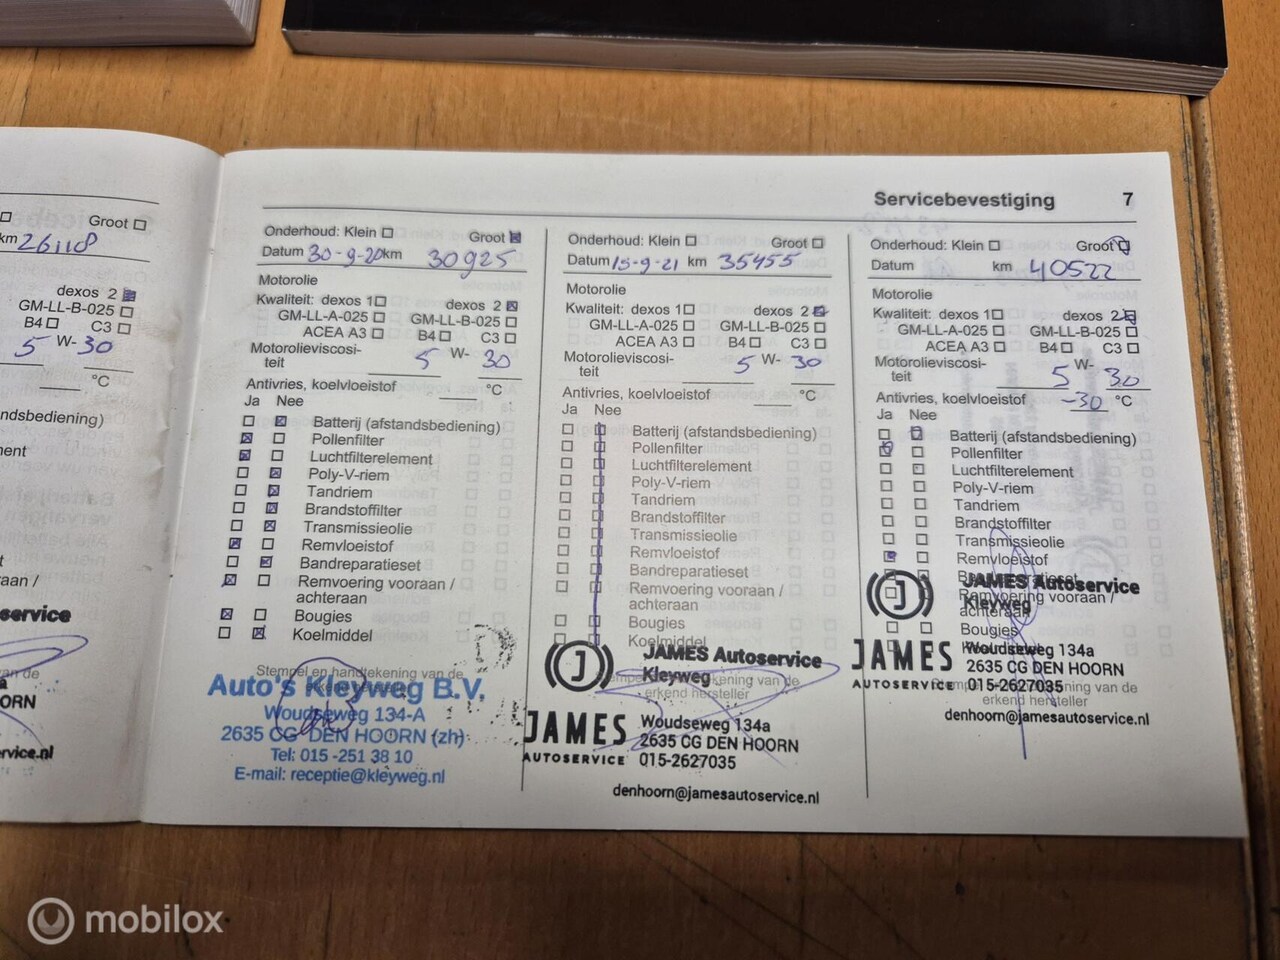 Servicebevestiging 7
Groot
km 26118
dexos 2
GM-LL-B-025
B4 C3
5 W- 30
°C
service
ORN
rvice.nl
Onderhoud: Klein Groot
Datum 30-9-20 km 30925
Motorolie
Kwaliteit: dexos 1 dexos 2
GM-LL-A-025 GM-LL-B-025
ACEA A3 B4 C3
Motorolieviscosi-
teit 5 W- 30
Antivries, koelvloeistof °C
Ja Nee
Batterij (afstandsbediening)
Pollenfilter
Luchtfilterelement
Poly-V-riem
Tandriem
Brandstoffilter
Transmissieolie
Remvloeistof
Bandreparatieset
Remvoering vooraan /
achteraan
Bougies
Koelmiddel
Stempel en handtekening van de
erkend hersteller
Auto's Kleyweg B.V.
Woudseweg 134-A
2635 CG DEN HOORN (zh)
Tel: 015 -251 38 10
E-mail: receptie@kleyweg.nl
Onderhoud: Klein Groot
Datum 15-9-21 km 35455
Motorolie
Kwaliteit: dexos 1 dexos 2
GM-LL-A-025 GM-LL-B-025
ACEA A3 B4 C3
Motorolieviscosi-
teit 5 W- 30
Antivries, koelvloeistof °C
Ja Nee
Batterij (afstandsbediening)
Pollenfilter
Luchtfilterelement
Poly-V-riem
Tandriem
Brandstoffilter
Transmissieolie
Remvloeistof
Bandreparatieset
Remvoering vooraan /
achteraan
Bougies
Koelmiddel
JAMES Autoservice
Kleyweg
erkend hersteller
JAMES
AUTOSERVICE
Woudseweg 134a
2635 CG DEN HOORN
015-2627035
denhoorn@jamesautoservice.nl
Onderhoud: Klein Groot
Datum km 40522
Motorolie
Kwaliteit: dexos 1 dexos 2
GM-LL-A-025 GM-LL-B-025
ACEA A3 B4 C3
Motorolieviscosi-
teit 5 W- 30
Antivries, koelvloeistof -30 °C
Ja Nee
Batterij (afstandsbediening)
Pollenfilter
Luchtfilterelement
Poly-V-riem
Tandriem
Brandstoffilter
Transmissieolie
Remvloeistof
JAMES Autoservice
Remvoering vooraan /
achteraan
Kleyweg
Bougies
JAMES
AUTOSERVICE
Woudseweg 134a
2635 CG DEN HOORN
015-2627035
erkend hersteller
denhoorn@jamesautoservice.nl
mobilox